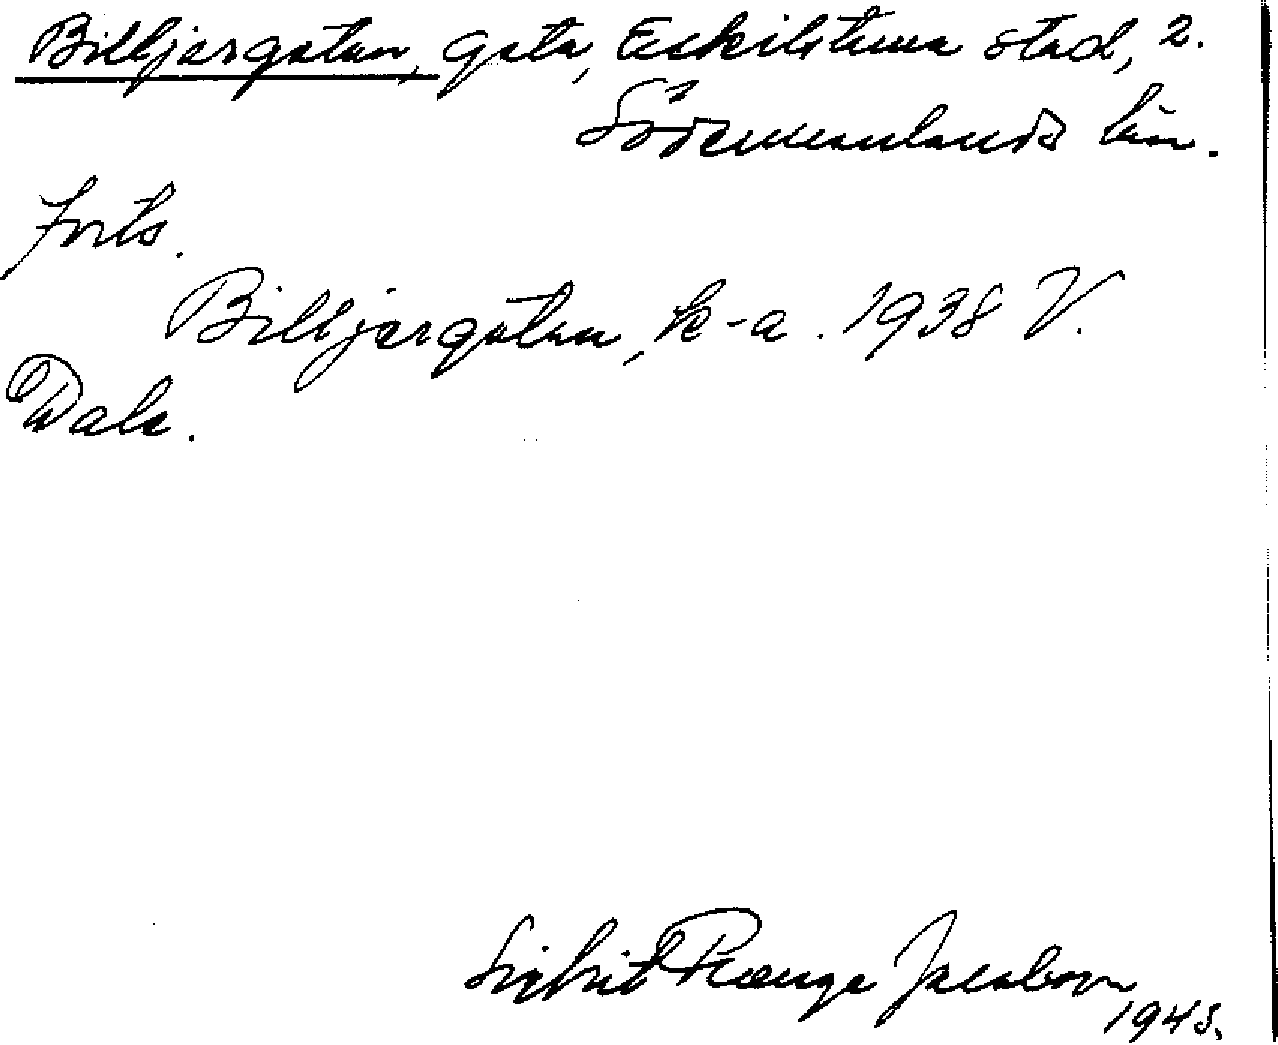 Bilbjersgatan, gata, Eskilstuna stad, 2.
Södermanlands län.
Forts.
Bilbjersgatan, k-a. 1938 V.
Dala.
Sigbrit Plænge Jacobson
1943.